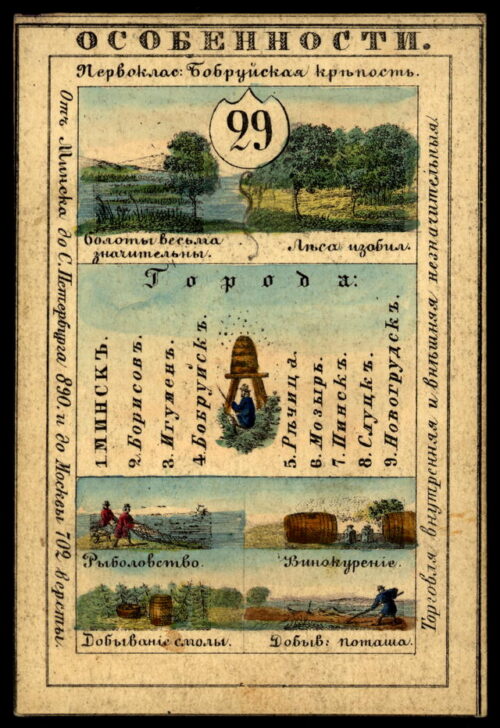 ОСОБЕННОСТИ.
Первоклас: Бобруйская крѣпость.
29
Болоты весьма
значительны.
Лѣса изобил.
Города:
1. МИНСКЪ.
2. Борисовъ.
3. Игуменъ.
4. Бобруйскъ.
5. Рѣчица.
6. Мозырь.
7. Пинскъ.
8. Слуцкъ.
9. Новогрудскъ.
Рыболовство.
Винокуреніе.
Добываніе смолы.
Добыв: поташа.
Отъ Минска до С. Петербурга 890. и до Москвы 702 версты.
Торговля внутренняя и внѣшняя, незначительныя.